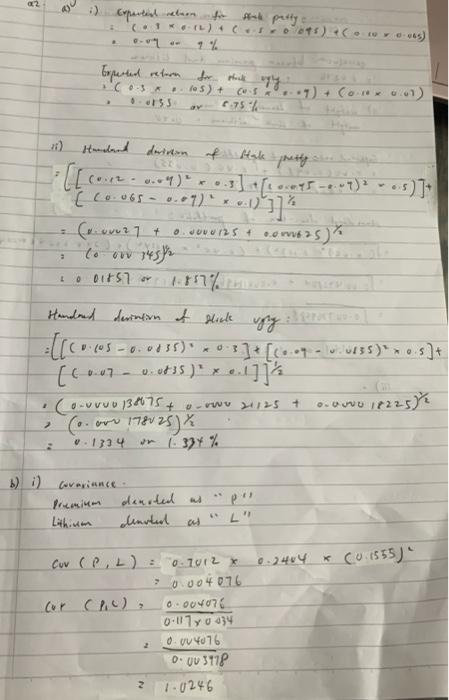 Q2 a) i) Expected return for stock pretty
= (0.3 x 0.12) + (0.5 x 0.095) + (0.10 x 0.065)
= 0.09 or 9%
Expected return for stock ugly
= (0.3 x 0.105) + (0.5 x 0.09) + (0.10 x 0.07)
= 0.0855 or
ii) Standard deviation of stock pretty
= [[(0.12 - 0.09)² x 0.3] + [(0.095 - 0.09)² x 0.5)] +
[(0.065 - 0.09)² x 0.1)]]½
= (0.00027 + 0.0000125 + 0.0000625)½
= (0.000345)½
= 0.01857 or 1.857%
Standard deviation of stock ugly :
= [[(0.105 - 0.0835)² x 0.3] + [(0.09 - 0.0835)² x 0.5] +
[(0.07 - 0.0835)² x 0.1]]½
= (0.000138675 + 0.000021125 + 0.000018225)½
= (0.000178025)½
= 0.1334 or 1.334%
b) i) Covariance.
Premium denoted as "P"
Lithium denoted as "L"
Cov (P, L) = 0.7012 x 0.2404 x (0.1555)²
= 0.004076
Cor (P, L) = 0.004076
0.117 x 0.034
= 0.004076
0.003978
= 1.0246